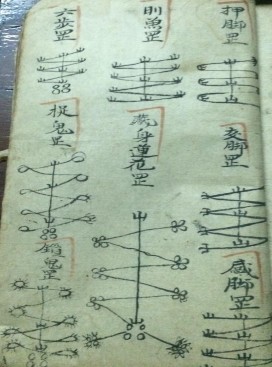 押脚罡
交脚罡
感脚罡
罡
藏身蓮花罡
六步罡
捉鬼罡
鬼罡